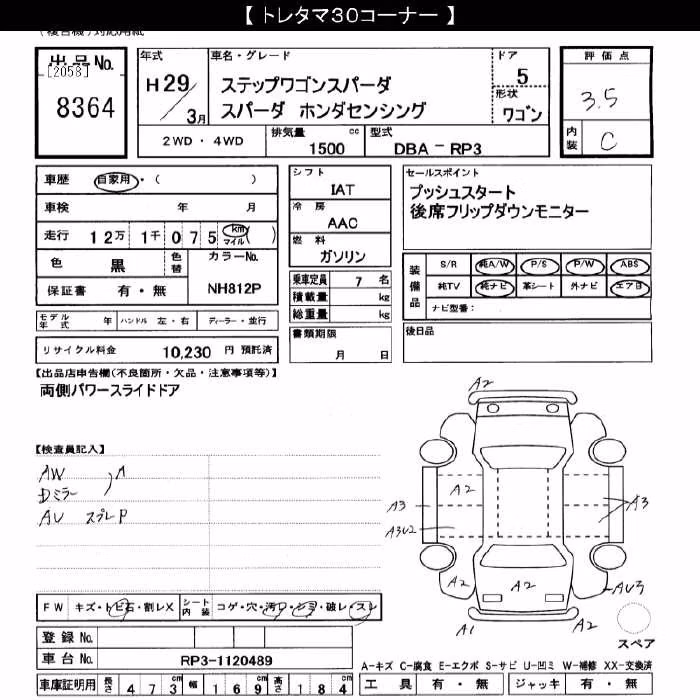 【 トレタマ30コーナー 】
出品No.
[2058]
8364
年式
H 29 / 3月
車名・グレード
ステップワゴンスパーダ
スパーダ ホンダセンシング
ドア
5
形状
ワゴン
評価点
3.5
内装
C
2WD ・ 4WD
排気量 1500 cc
型式 DBA - RP3
車歴 自家用 ・ ( )
車検 年 月
走行 12万 1千 0 7 5 km マイル ( )
色 黒
色替
カラーNo.
NH812P
保証書 有 ・ 無
モデル年式 年
ハンドル 左 ・ 右
ディーラー ・ 並行
リサイクル料金 10,230 円 預託済
シフト
IAT
冷房
AAC
燃料
ガソリン
乗車定員 7 名
積載量 kg
総重量 kg
書類期限
月 日
セールスポイント
プッシュスタート
後席フリップダウンモニター
装備品
S/R 純A/W P/S P/W ABS
純TV 純ナビ 革シート 外ナビ エアB
ナビ型番：
後日品
【出品店申告欄(不良箇所・欠品・注意事項等)】
両側パワースライドドア
【検査員記入】
AW
Dミラー
A
AU スプレP
A2
A2
A3
A3U2
A3
A2
A2
A2
AU3
A1
A2
スペア
FW キズ・トビ石・割レX
シート内装 コゲ・穴・汚レ・シミ・破レ・スレ
登録No.
車台No. RP3-1120489
車庫証明用 長さ 473cm 幅 169cm 高さ 184cm
A-キズ C-腐食 E-エクボ S-サビ U-凹ミ W-補修 XX-交換済
工具 有 ・ 無 ジャッキ 有 ・ 無